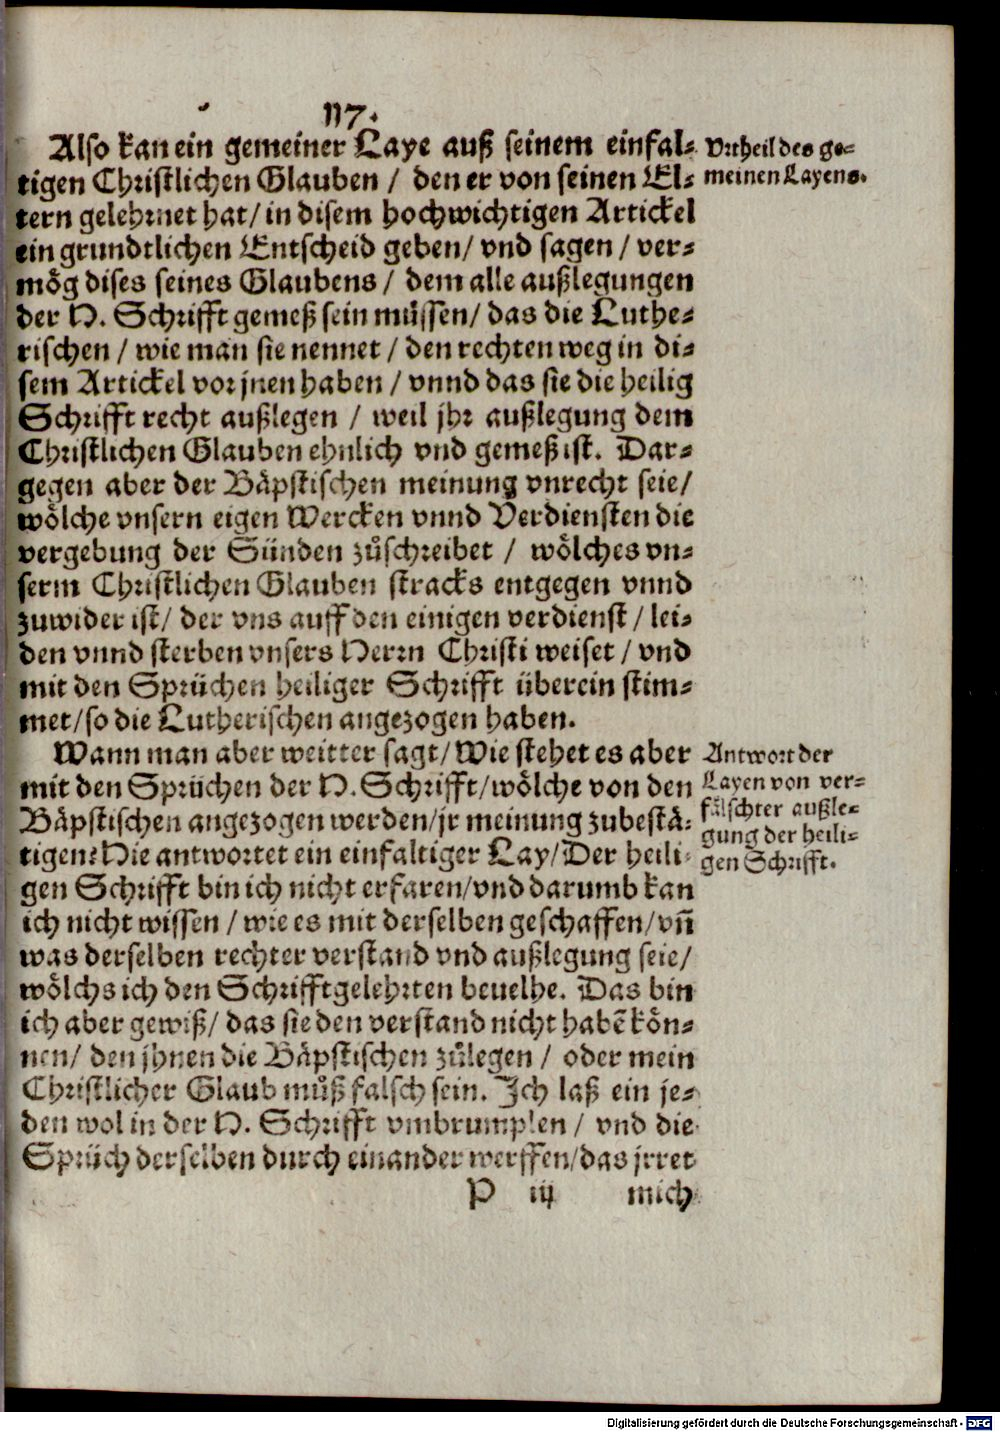 117.
Also kan ein gemeiner Laye auß seinem einfal-
tigen Christlichen Glauben / den er von seinen El-
tern gelehrnet hat / in disem hochwichtigen Artickel
ein grundtlichen Entscheid geben / vnd sagen / ver-
mög dises seines Glaubens / dem alle außlegungen
der H. Schrifft gemeß sein müssen / das die Luthe-
rischen / wie man sie nennet / den rechten weg in di-
sem Artickel vor jnen haben / vnnd das sie die heilig
Schrifft recht außlegen / weil jhr außlegung dem
Christlichen Glauben ehnlich vnd gemeß ist. Dar-
gegen aber der Bäpstischen meinung vnrecht seie /
wölche vnsern eigen Wercken vnnd Verdiensten die
vergebung der Sünden zůschreibet / wölches vn-
serm Christlichen Glauben stracks entgegen vnnd
zuwider ist / der vns auff den einigen verdienst / lei-
den vnnd sterben vnsers Herrn Christi weiset / vnd
mit den Sprüchen heiliger Schrifft überein stim-
met / so die Lutherischen angezogen haben.
Wann man aber weitter sagt / Wie stehet es aber
mit den Sprüchen der H. Schrifft / wölche von den
Bäpstischen angezogen werden / jr meinung zubestä-
tigen? Hie antwortet ein einfaltiger Lay / Der heili-
gen Schrifft bin ich nicht erfaren / vnd darumb kan
ich nicht wissen / wie es mit derselben geschaffen / vñ
was derselben rechter verstand vnd außlegung seie /
wölchs ich den Schrifftgelehrten beuelhe. Das bin
ich aber gewiß / das sie den verstand nicht habẽ kön-
nen / den jhnen die Bäpstischen zůlegen / oder mein
Christlicher Glaub můß falsch sein. Ich laß ein je-
den wol in der H. Schrifft vmbrumplen / vnd die
Sprüch derselben durch einander werffen / das jrret
P iij mich
Vrtheil des ge-
meinen Layens.
Antwort der
Layen von ver-
fälschter außle-
gung der heili-
gen Schrifft.
Digitalisierung gefördert durch die Deutsche Forschungsgemeinschaft - DFG